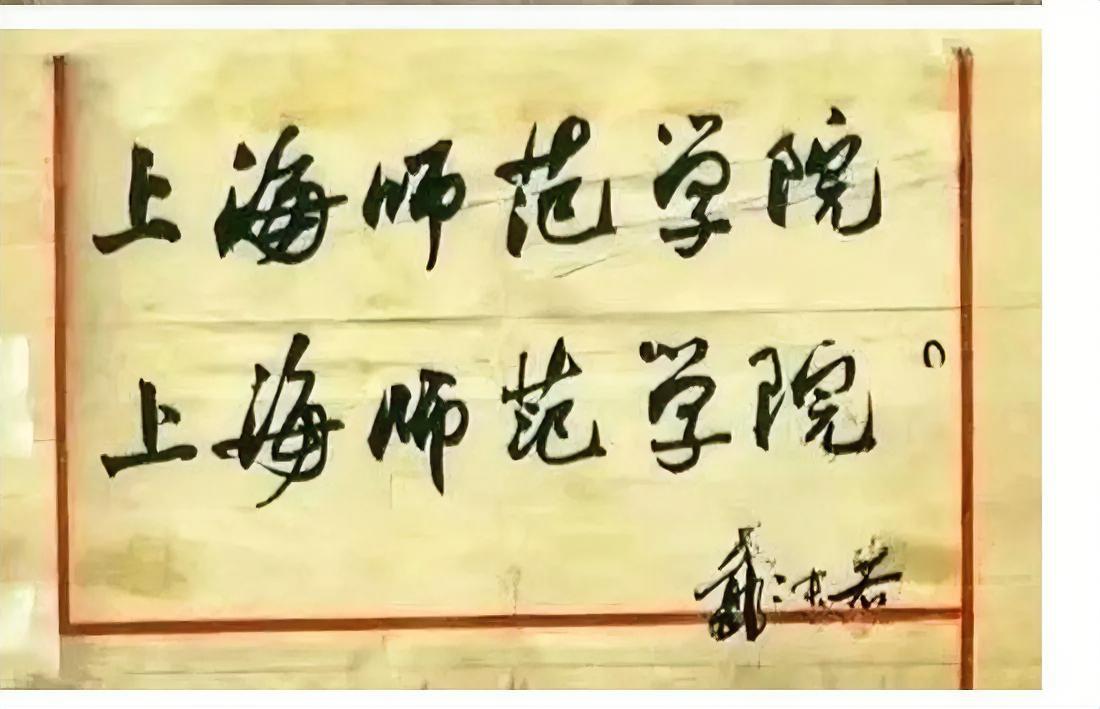 上海师范学院
上海师范学院
郭沫若